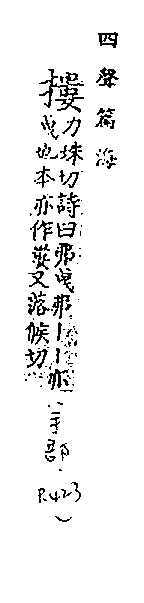 四聲篇海
摟力珠切詩曰弗曳弗丨丨亦
曳也本亦作婁又落侯切
(手部.
P.423)